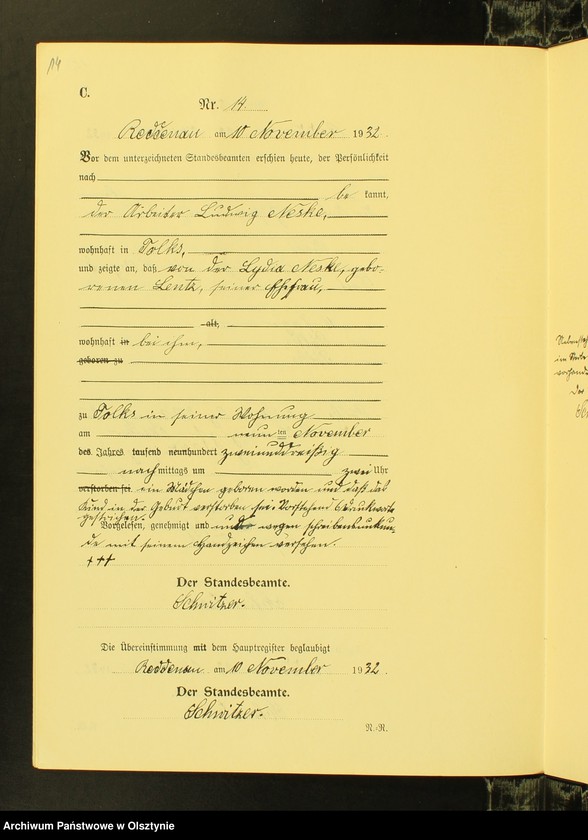 14
C.
Nr. 14
Reddenau am 10 November 1932
Vor dem unterzeichneten Standesbeamten erschien heute, der Persönlichkeit
nach
be kannt,
der Arbeiter Ludwig Neske,
wohnhaft in Tolks,
und zeigte an, daß von der Lydia Neske, gebo-
renen Lentz, seiner Ehefrau,
alt,
wohnhaft in bei ihm,
geboren zu
zu Tolks in seiner Wohnung
am neun ten November
des Jahres tausend neunhundert zweiunddreißig
nach mittags um zwei Uhr
verstorben sei. ein Mädchen geboren worden und daß das
Kind in der Geburt verstorben sei. Vorstehend Druckworte
gestrichen.
Vorgelesen, genehmigt und wegen Schreibensunkun-
de mit seinem Handzeichen versehen.
+++
Der Standesbeamte.
Schnitzer.
Die Übereinstimmung mit dem Hauptregister beglaubigt
Reddenau am 10 November 1932.
Der Standesbeamte.
Schnitzer.
N.-R.
Archiwum Państwowe w Olsztynie